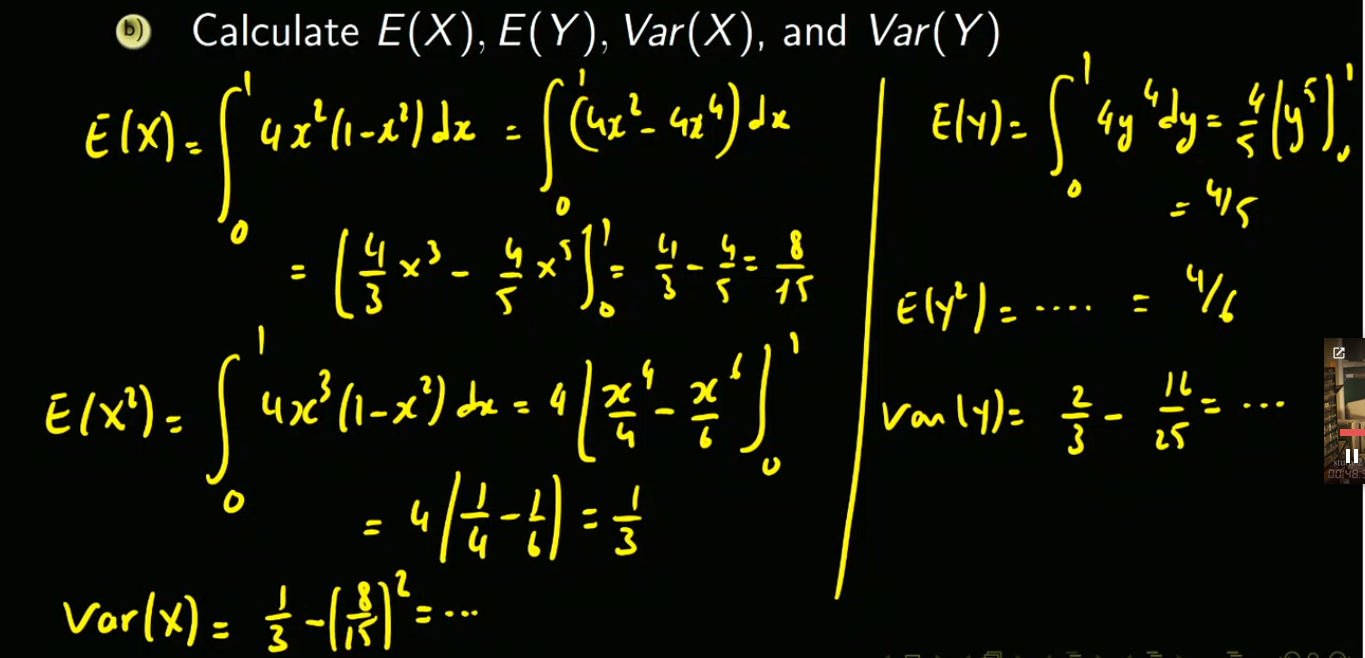 b) Calculate E(X), E(Y), Var(X), and Var(Y)
E(X) = ∫₀¹ 4x²(1-x²) dx = ∫₀¹ (4x² - 4x⁴) dx
= [4/3 x³ - 4/5 x⁵]₀¹ = 4/3 - 4/5 = 8/15
E(X²) = ∫₀¹ 4x³(1-x²) dx = 4[x⁴/4 - x⁶/6]₀¹
= 4(1/4 - 1/6) = 1/3
Var(X) = 1/3 - (8/15)² = ...
E(Y) = ∫₀¹ 4y⁴ dy = 4/5 (y⁵)₀¹
= 4/5
E(Y²) = .... = 4/6
Var(Y) = 2/3 - 16/25 = ...